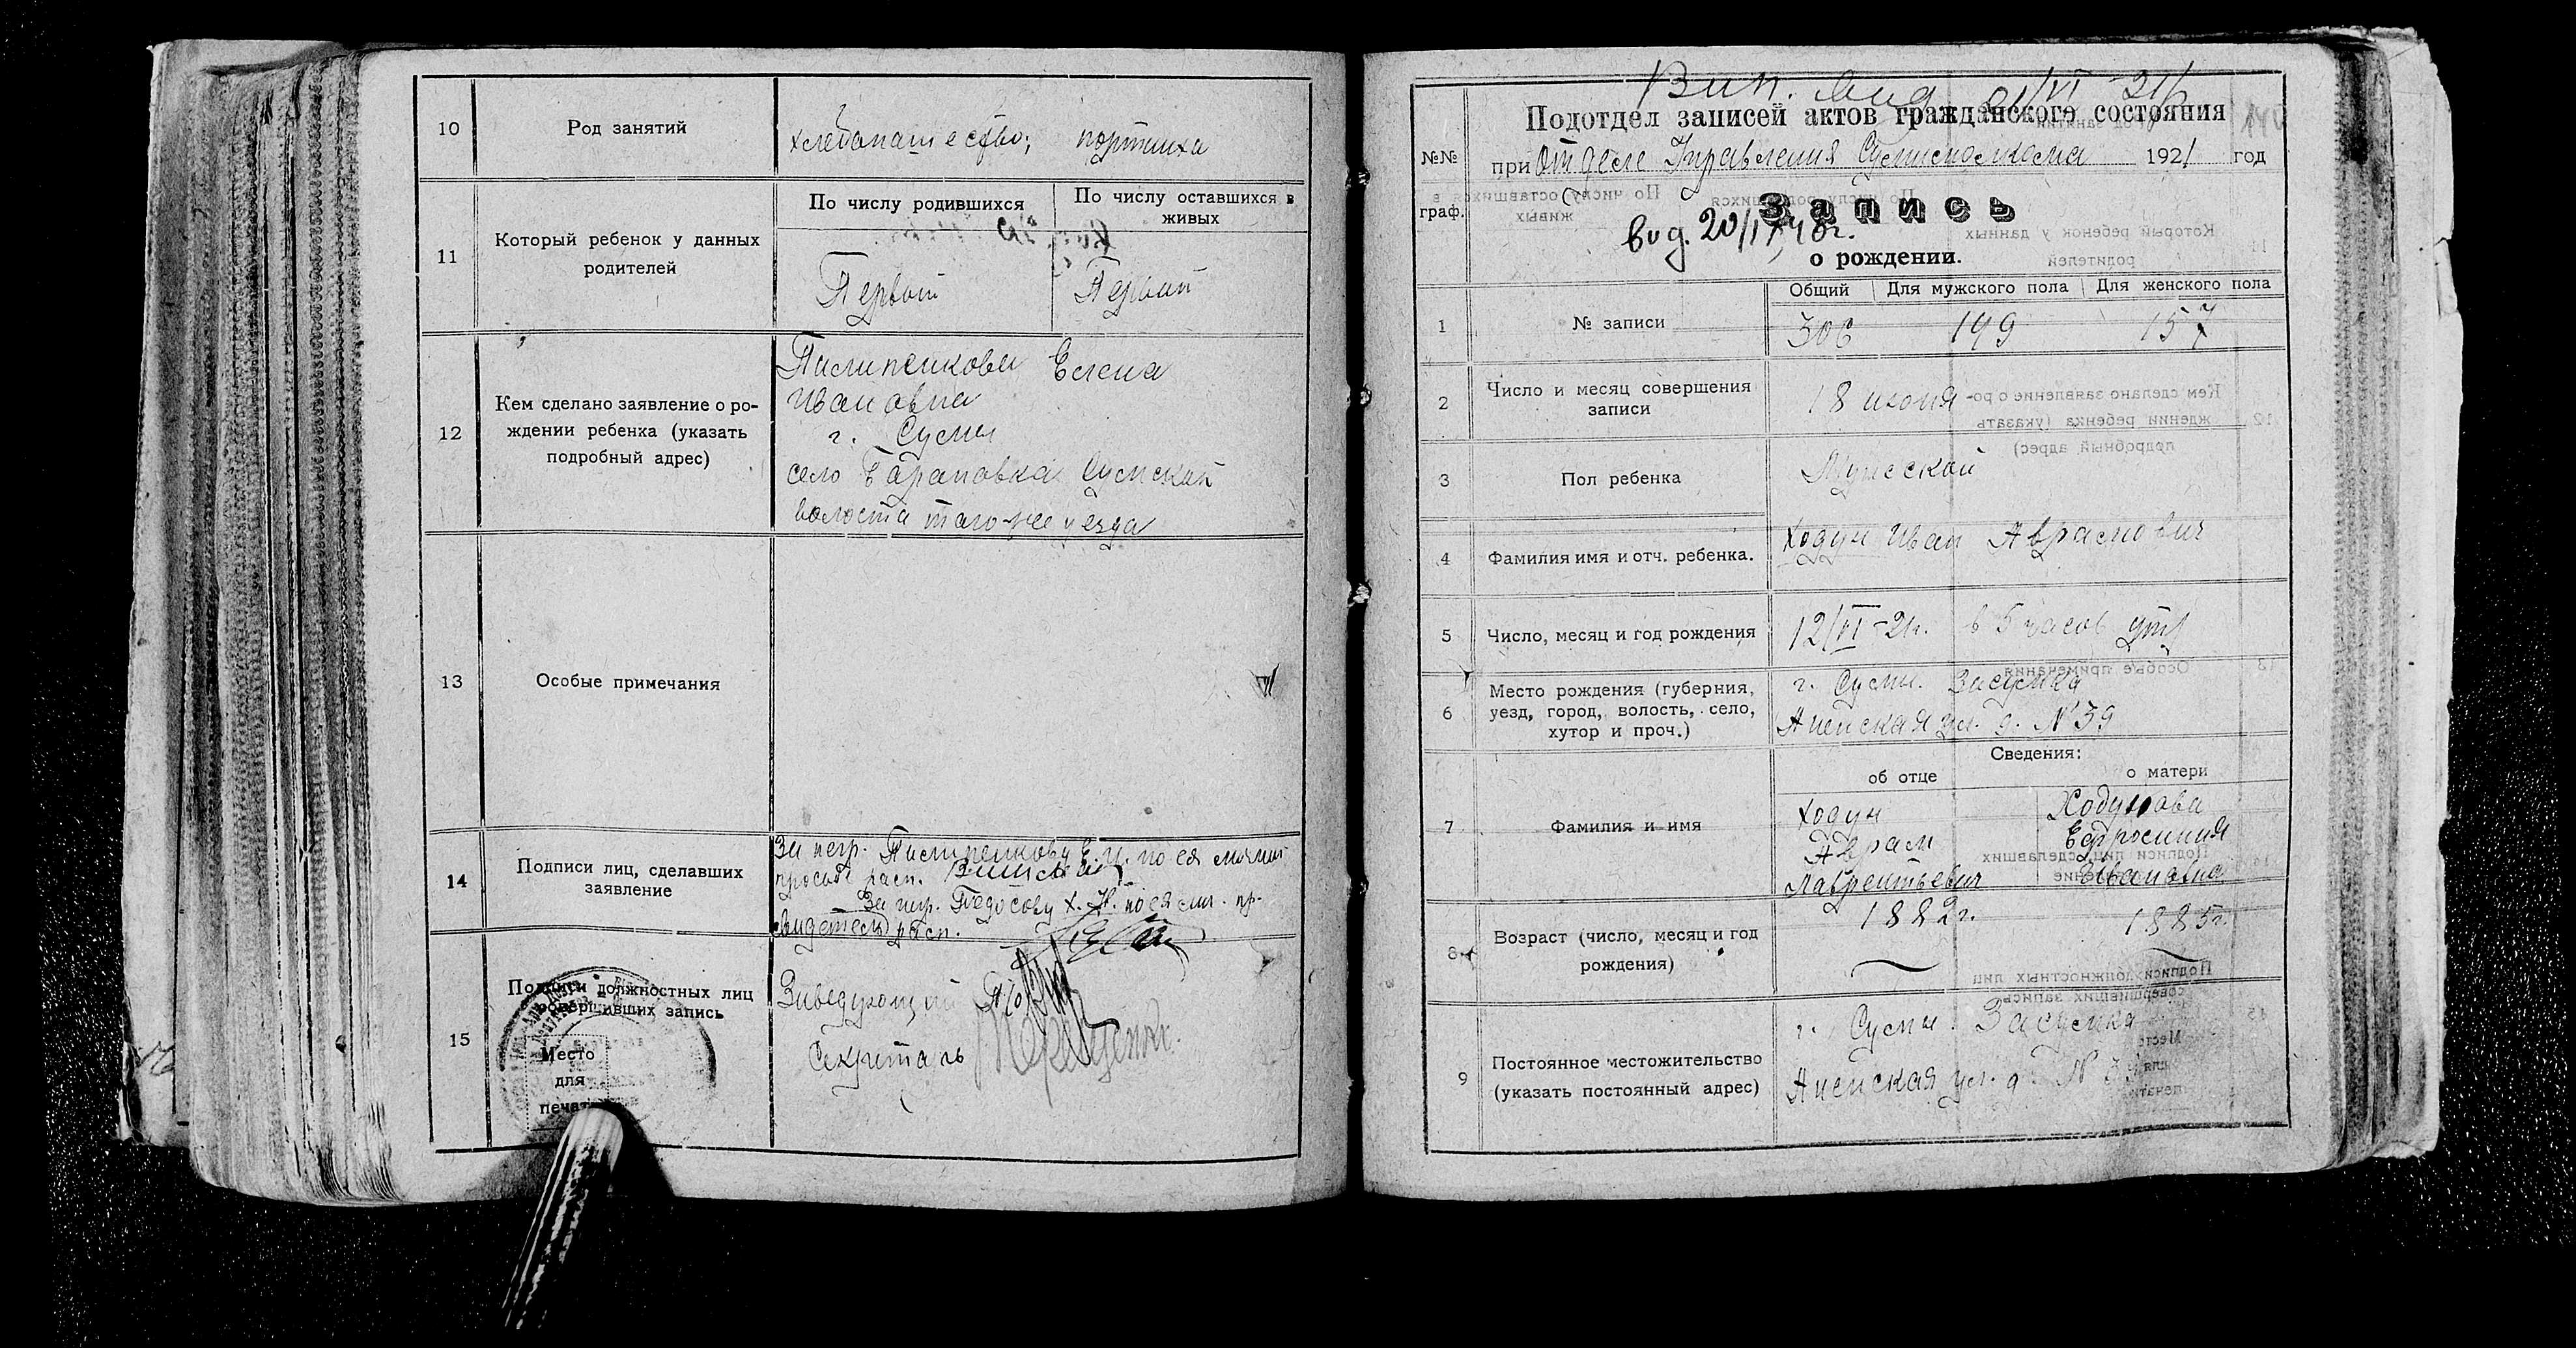 10
Род занятий
хлебопашество; портниха
11
Который ребенок у данных
родителей
По числу родившихся
По числу оставшихся в
живых
Первый
Первый
12
Кем сделано заявление о ро-
ждении ребенка (указать
подробный адрес)
Пилипенкова Елена
Ивановна
г. Сумы
село Барановка Сумской
волости того-же уезда
13
Особые примечания
14
Подписи лиц, сделавших
заявление
За негр. Пилипенкову Е. И. по ея личной
просьбе расп.
За негр. Федосову Х. по ея лич. пр.
свидетель расп.
15
Подписи должностных лиц
совершивших запись
Место
для
печати
Заведующий
Секретарь
Вип. вид 21/VI 21
Подотдел записей актов гражданского состояния
при Отделе Управления 1921 год
№№
граф.
Запись
вид. 20/
о рождении.
1
№ записи
Общий
Для мужского пола
Для женского пола
306
149
157
2
Число и месяц совершения
записи
18 июня
3
Пол ребенка
Мужской
4
Фамилия имя и отч. ребенка.
Ходун Иван Аврамович
5
Число, месяц и год рождения
12/VI-21г. в 5 часов утр
6
Место рождения (губерния,
уезд, город, волость, село,
хутор и проч.)
г. Сумы. Засумка
ул. д. № 39
Сведения:
об отце
о матери
7
Фамилия и имя
Ходун
Аврам
Лаврентьевич
Ходунова
Ефросиния
Ивановна
8
Возраст (число, месяц и год
рождения)
1882г.
1885г.
9
Постоянное местожительство
(указать постоянный адрес)
г. Сумы. Засумка
ул. д. №